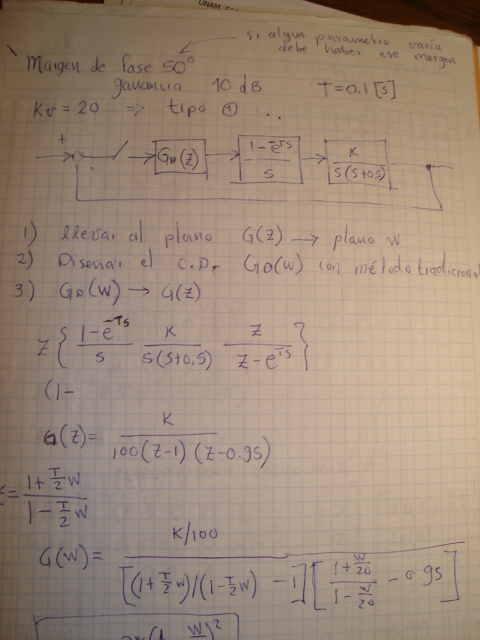 UNAM
si algun parametro varia
debe haber ese margen
Margen de fase 50°
ganancia 10 dB T=0.1 [s]
Kv = 20 => tipo ① ..
+ G_D(z) 1-e^-TS / S K / S(S+0.5)
-
1) llevar al plano G(z) → plano w
2) Diseñar el C.D. G_D(w) con método tradicional
3) G_D(w) → G(z)
Z{ 1-e^-TS / S K / S(S+0.5) Z / Z-e^TS }
(1-
G(z)= K / 100(z-1)(z-0.95)
= 1+T/2 w / 1-T/2 w
G(w)= K/100 / [(1+T/2 w)/(1-T/2 w) - 1][ 1+w/20 / 1-w/20 - 0.95]